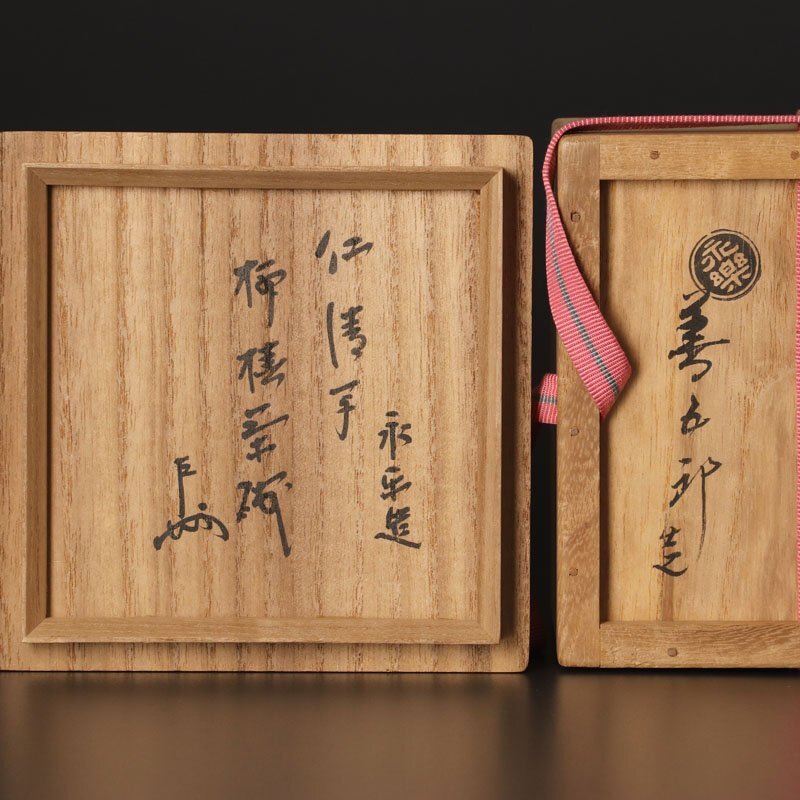 永楽造
仁清手
柳桜茶碗
永樂
善五郎
造